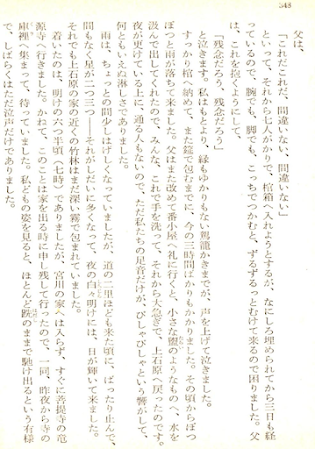 548
父は、
「これだこれだ、間違いない、間違いない」
といって、それから七人がかりで、棺箱へ入れようとするが、なにしろ埋められてから三日も経
っているので、腕でも、脚でも、こっちでつかむと、ずるずるっとむけて来るので困りました。父
は、これを抱くようにして、
「残念だろう、残念だろう」
と泣きます。私はもとより、縁もゆかりもない駕籠かきまでが、声を上げて泣きました。
すっかり棺へ納めて、また縄で包むまでに、今の三時間ばかりもかかりました。その頃からぽつ
ぽつと雨が落ちて来ました。父はまた改めて番小屋へ礼に行くと、小さな盥のようなものへ、水を
汲んで出してくれたので、みんな、これで手を洗って、それから大急ぎで、上石原へ戻ったのです。
夜が更けている上に、通る人もないので、ただ私たちの足音だけが、びしゃびしゃという響がして、
何ともいえぬ淋しさでありました。
雨は、ちょっとの間少しはげしくなっていましたが、道の二里ほども来た頃に、ぱったり止んで、
間もなく星が二つ三つ――それがしだいに多くなって、夜の白々明けには、日が輝いて来ました。
それでも上石原の家の近くの竹林はまだ深い霧で包まれていました。
着いたのは、明けの六つ半頃(七時)でありましたが、宮川の家へは入らず、すぐに菩提寺の竜
源寺へ行きました。かねて、このことは家を出る時に申し残して行ったので、一同、昨夜から寺の
庫裡へ集まって、待っていました。私どもの姿を見ると、ほとんど跣のままで馳け出るという有様
で、しばらくはただ泣声だけでありました。